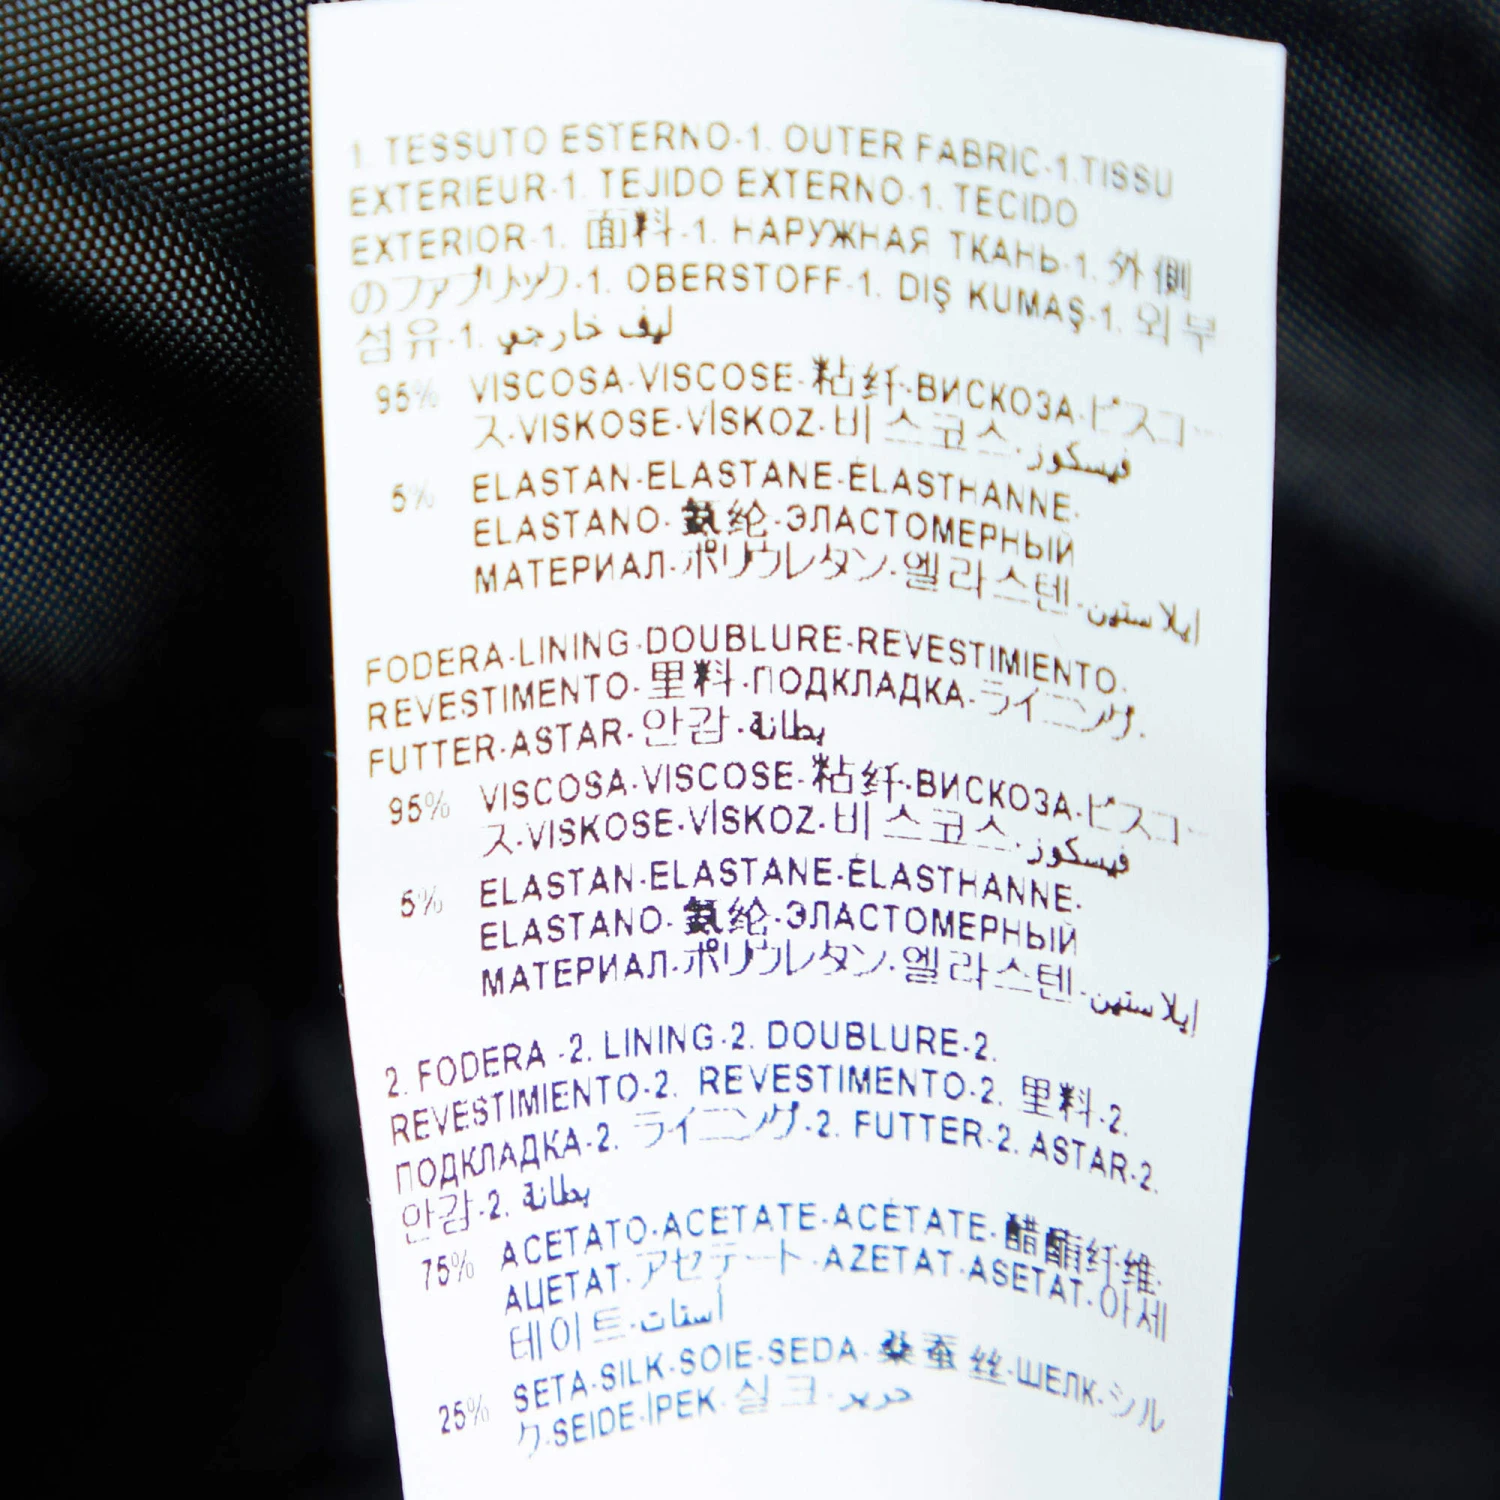 1. TESSUTO ESTERNO-1. OUTER FABRIC-1.TISSU
EXTERIEUR-1. TEJIDO EXTERNO-1. TECIDO
EXTERIOR-1. 面料-1. НАРУЖНАЯ ТКАНЬ-1. 外側
のファブリック-1. OBERSTOFF-1. DIŞ KUMAŞ-1. 외부
섬유-1. ليف خارجي
95% VISCOSA-VISCOSE-粘纤-ВИСКОЗА-ビスコー
ス-VISKOSE-VİSKOZ-비스코스-فيسكوز
5% ELASTAN-ELASTANE-ÉLASTHANNE-
ELASTANO-氨纶-ЭЛАСТОМЕРНЫЙ
МАТЕРИАЛ-ポリウレタン-엘라스텐-إيلاستين
FODERA-LINING-DOUBLURE-REVESTIMIENTO-
REVESTIMENTO-里料-ПОДКЛАДКА-ライニング-
FUTTER-ASTAR-안감-بطانة
95% VISCOSA-VISCOSE-粘纤-ВИСКОЗА-ビスコー
ス-VISKOSE-VİSKOZ-비스코스-فيسكوز
5% ELASTAN-ELASTANE-ÉLASTHANNE-
ELASTANO-氨纶-ЭЛАСТОМЕРНЫЙ
МАТЕРИАЛ-ポリウレタン-엘라스텐-إيلاستين
2. FODERA -2. LINING-2. DOUBLURE-2.
REVESTIMIENTO-2. REVESTIMENTO-2. 里料-2.
ПОДКЛАДКА-2. ライニング-2. FUTTER-2. ASTAR-2.
안감-2. بطانة
75% ACETATO-ACETATE-ACÉTATE-醋酯纤维-
АЦЕТАТ-アセテート-AZETAT-ASETAT-아세
테이트-أستات
25% SETA-SILK-SOIE-SEDA-桑蚕丝-ШЕЛК-シル
ク-SEIDE-İPEK-실크-حرير